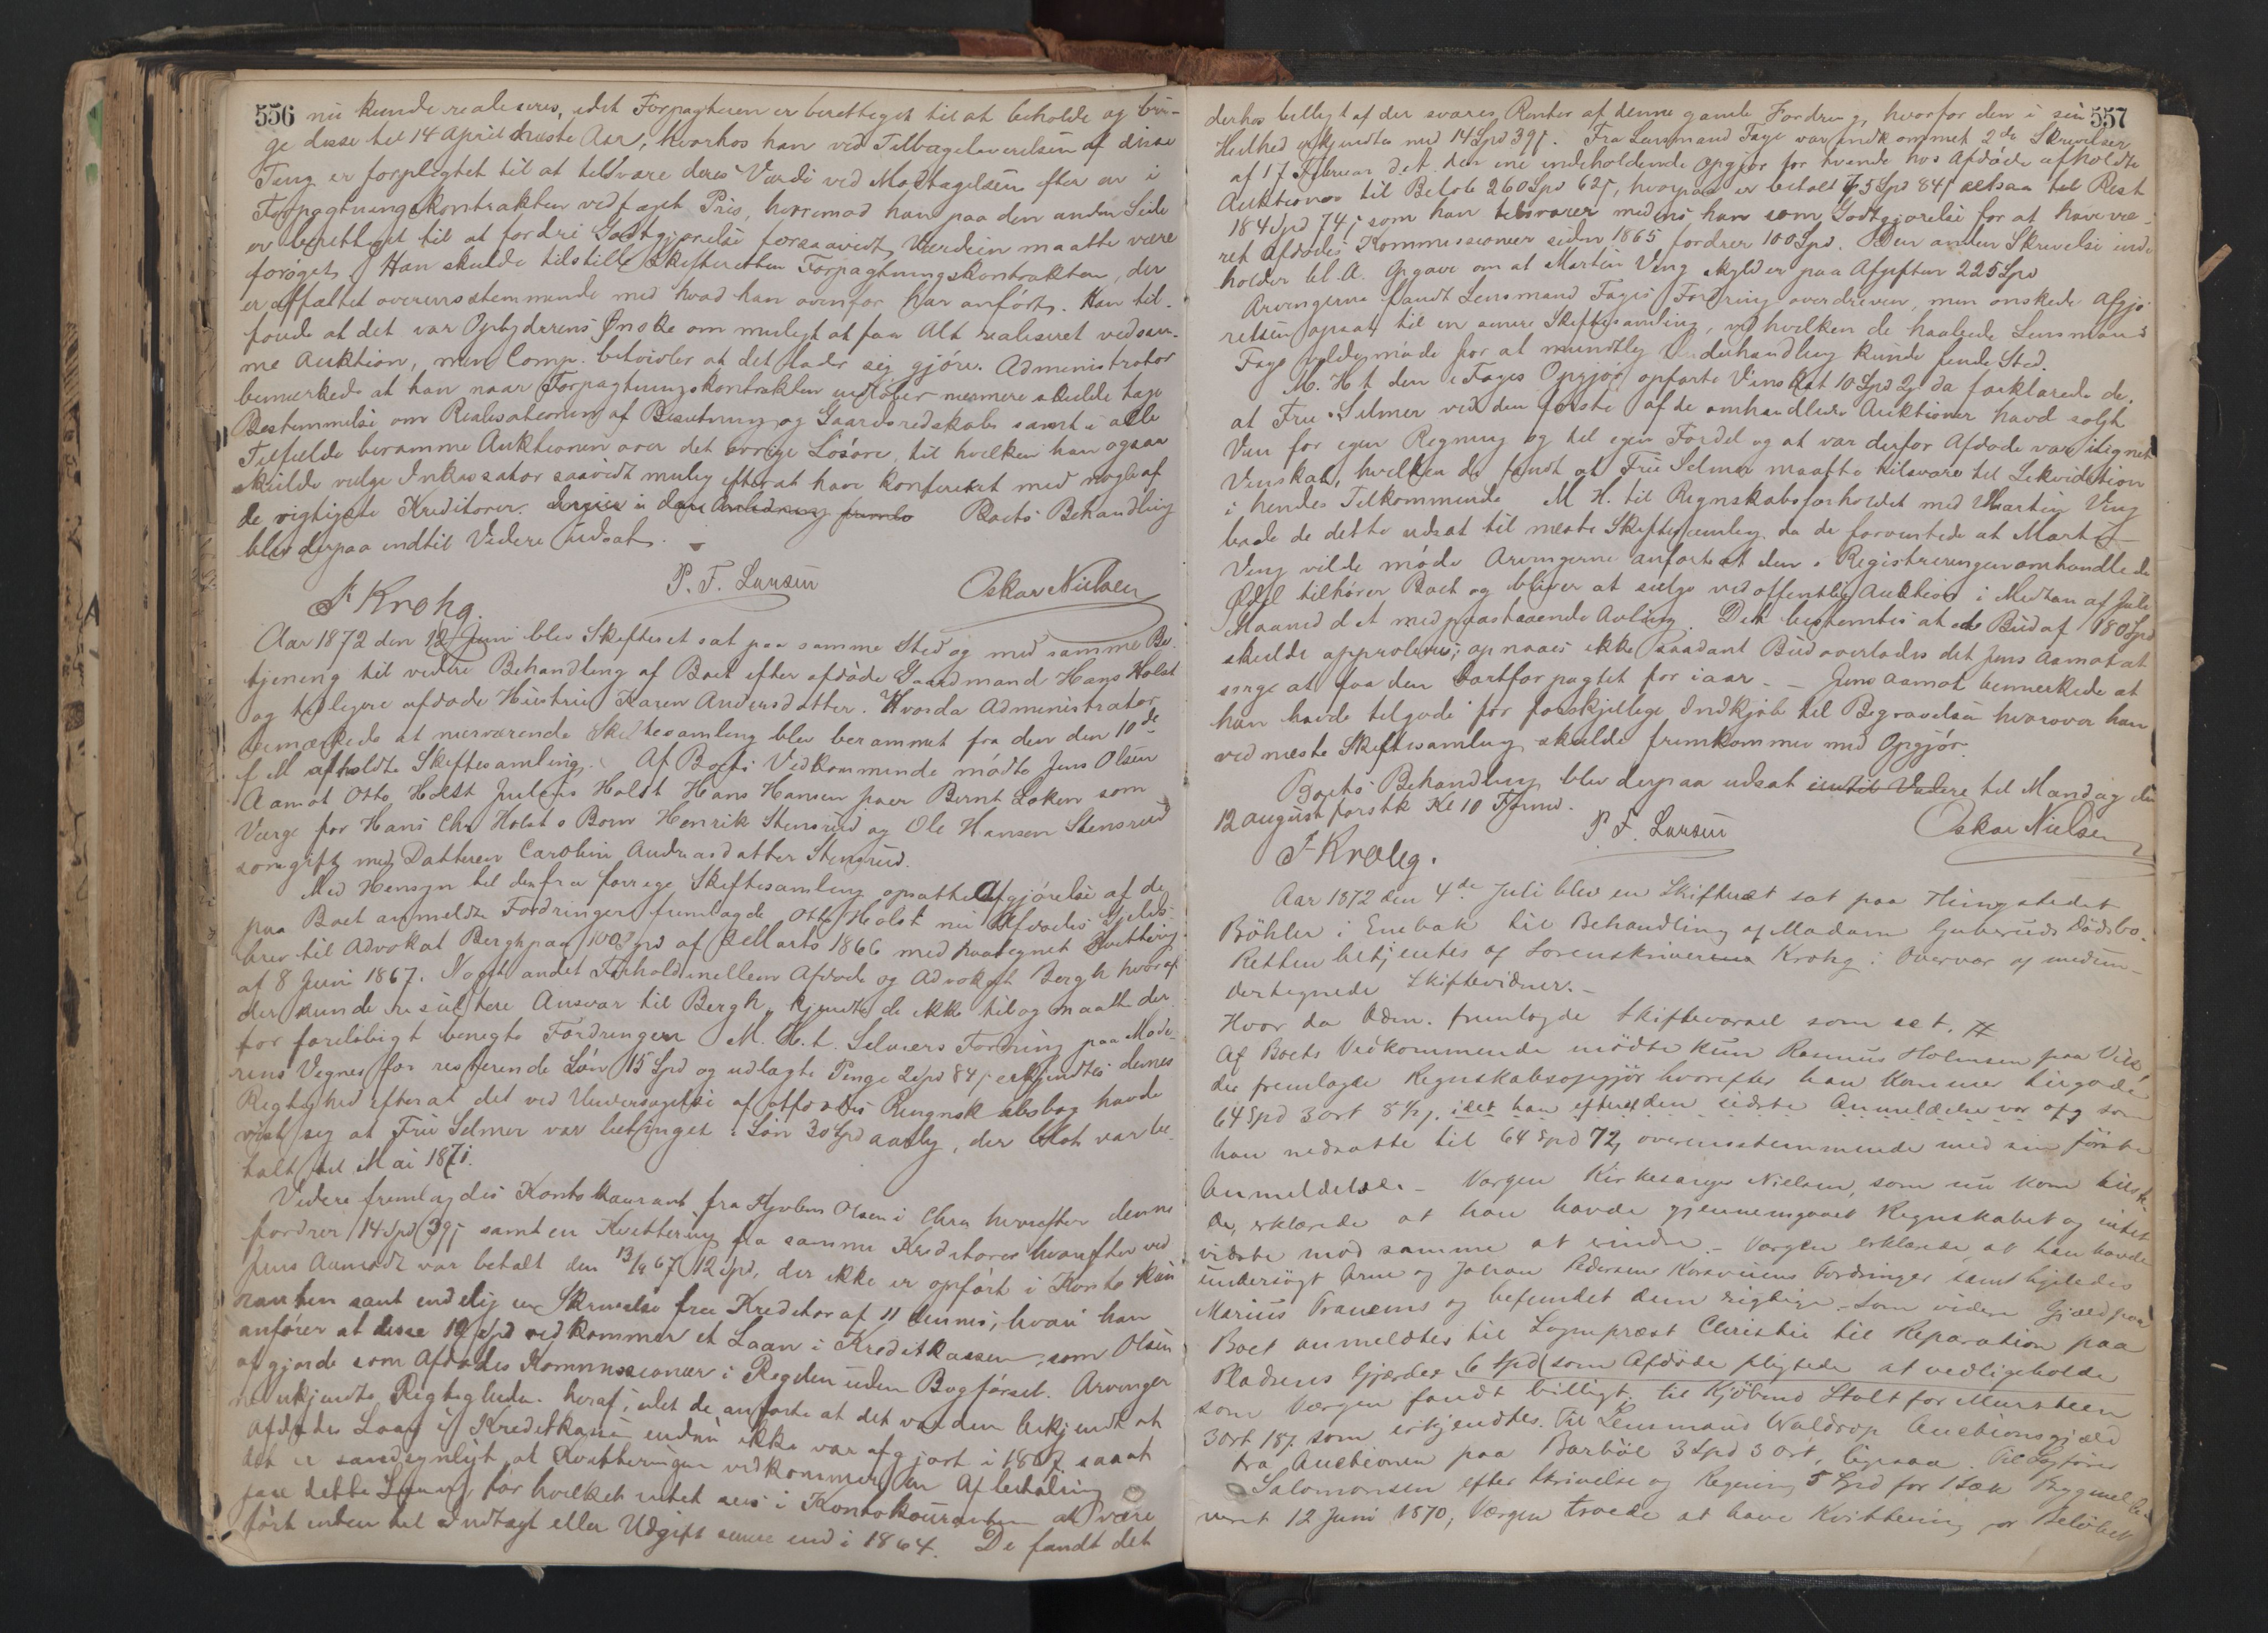 556
nu kunde realiseres, idet Forpagteren er berettiget til at beholde og bru-
ge disse til 14 April næste Aar, hvorhos han ved Tilbageleverelsen af disse
Ting er forpligtet til at tilsvare deres Værdi ved Modtagelsen efter en i
Forpagtningskontrakten vedføiet Pris, hvorimod han paa den anden Side
er berettiget til at fordre Godtgjørelse forsaavidt Værdien maatte være
forøget. Han skulde tilstille Skifteretten Forpagtningskontrakten, der
er affattet overensstemmende med hvad han ovenfor har anført. Han til-
føiede at det var Opbyderens Ønske om muligt at faa Alt realiseret ved sam-
me Auktion, men Comp. betvivler at det lader sig gjøre. Administrator
bemerkede at han naar Forpagtningskontrakten indløber nærmere skulde tage
Bestemmelse om Realisationen af Besætning og Gaardsredskaber samt i alle
Tilfælde beramme Auktionen over det øvrige Løsøre, til hvilken han ogsaa
skulde vælge Inkassator saavidt mulig efter at have konfereret med nogle af
de vigtigste Kreditorer. Boets Behandling
blev derpaa indtil Videre udsat.
F Krohg. P. F. Larsen Oskar Nielsen
Aar 1872 den 12 Juni blev Skifteret sat paa samme Sted og med samme Be
tjening til videre Behandling af Boet efter afdøde Gaardmand Hans Holst
og tidligere afdøde Hustru Karen Andersdatter. Hvorda Administrator
bemærkede at nærværende Skiftesamling blev berammet fra den den 10de
f M afholdte Skiftesamling. Af Boets Vedkommende mødte Jens Olsen
Aamot Otto Holst Julius Holst Hans Hansen paa Bernt Løken som
Værge for Hans Chr Holsts Børn Henrik Stensrud og Ole Hansen Stensrud
som gift med Datteren Caroline Andreasdatter Stensrud.
Med Hensyn til den fra forrige Skiftesamling opsatte Afgjørelse af de
paa Boet anmeldte Fordringer fremlagde Otto Holst nu Afdødes Gjelds-
brev til Advokat Bergh paa 100 Spd af Marts 1866 med paategnet Kvittering
af 8 Juni 1867. Noget andet Forhold mellem Afdøde og Advokat Bergh hvoraf
der kunde resultere Ansvar til Bergh, kjendte de ikke til og maatte der-
for foreløbigt benegte Fordringen. M. H. t. Selmers Fordring paa Mode-
rens Vegne for resterende Løn 15 Spd og udlagte Penge 2 Spd 84 s erkjendtes dennes
Rigtighed efter at det ved Undersøgelse af afdødes Regnskabsbog havde
vist sig at Fru Selmer var betinget i Løn 30 Spd aarlig, der blot var be-
talt til Mai 1871.
Videre fremlagdes Kontokourant fra Hjvlem Olsen i Chra hvorefter denne
fordrer 14 Spd 39 s samt en Kvittering fra samme Kreditorer hvorefter ved
Jens Aamodt var betalt den 13/4 67 12 Spd, der ikke er opført i Konto kou
ranten samt endelig en Skrivelse fra Kreditor af 11 dennes, hvori han
anfører at disse 12 Spd vedkommer et Laan i Kreditkassen, som Olsen
afgjorde som Afdødes Kommissionær i Regelen uden Bogførsel. Arvinger
ne erkjendte Rigtigheden heraf, idet de anførte at det var dem bekjendt at
Afdødes Laan i Kreditkassen endnu ikke var afgjort i 1867 saa at
det er sandsynligt at Kvitteringen vedkommer en Afbetaling
paa dette Laan, for hvilket intet sees i Kontokouranten at være
ført enten til Indtægt eller Udgift senere end i 1864. De fandt det
557
derhos billigt af der svares Renter af denne gamle Fordring, hvorfor den i sin
Helhed erkjendtes med 14 Spd 39 s. Fra Lensmand Faye var indkommet 2de Skrivelser
af 17 Februar d. A. den ene indeholdende Opgjør for tvende hos Afdøde afholdte
Auktioner til Beløb 260 Spd 62 s, hvorpaa er betalt 75 Spd 84 s altsaa til Rest
184 Spd 74 s som han tilsvarer medens han som Godtgjørelse for at have væ-
ret Afdødes Kommissionær siden 1865 fordrer 100 Spd. Den anden Skrivelse inde
holder bl. A. Opgave om at Martin Veng skylder paa Afgiften 225 Spd
Arvingerne fandt Lensmand Fayes Fordring overdreven, men ønskede Afgjø-
relsen opsat til en senere Skiftesamling, ved hvilken de haabede Lensmand
Faye vilde møde for at mundtlig Underhandling kunde finde Sted.
M. H. t. den i Fayes Opgjør opførte Vinskat 10 Spd 2 s da forklarede de,
at Fru Selmer ved den første af de omhandlede Auktioner havde solgt
Vin for egen Regning og til egen Fordel og at var derfor Afdøde var ilignet
Vinskat, hvilken de fandt at Fru Selmer maatte tilsvare til Likvidation
i hendes Tilkommende. M. H. til Regnskabsforholdet med Martin Veng
bade de dette udsat til næste Skiftesamling da de forventede at Martin
Veng vilde møde. Arvingerne anførte at den i Registreringen omhandlede
Ødel tilhører Boet og bliver at sælge ved offentlig Auktion i Medten af Juli
Maaned d et med paastaaende Avling. Det bestemtes at et Bud af 180 Spd
skulde approberes; opnaaes ikke saadant Bud overlodes det Jens Aamot at
sørge at faa den bortforpagtet for iaar. – Jens Aamot bemerkede at
han havde tilgode for forskjellige Indkjøb til Begravelsen hvorover han
ved næste Skiftesamling skulde fremkomme med Opgjør.
Boets Behandling blev derpaa udsat indtil Videre til Mandag den
12 august førstk Kl 10 Formd.
F Krohg. P. F. Larsen Oskar Nielsen
Aar 1872 den 4de Juli blev en Skifteret sat paa Thingstedet
Bøhler i Enebak til Behandling af Madam Guberuds Dødsbo.
Retten betjentes af Sorenskriveren Krohg i Overvær af medun-
dertegnede Skiftevidner. –
Hvor da Adm. fremlagde Skiftevarsel som set. #
Af Boets Vedkommende mødte kun Rasmus Holmsen paa Vik,
der fremlagde Regnskabsopgjør hvorefter han kommer tilgode
64 Spd 3 ort 8 1/2 s. idet han efter den sidste Anmeldelse var og som
han nedsatte til 64 Spd 72, overensstemmende med sin første
Anmeldelse. – Værgen Kirkesanger Nielsen, som nu kom tilste-
de, erklærede at han havde gjennemgaaet Regnskabet og intet
vidste mod samme at erindre. – Værgen erklærede, at han havde
undersøgt Arne og Johan Pedersen Korsveiens Fordringer samt ligeledes
Marius Tranems og befundet dem rigtige. – Som videre Gjæld paa
Boet anmeldtes til Sognepræst Christie til Reparation paa
Pladsens Gjærder 6 Spd som Afdøde pligtede at vedligeholde
som Værgen fandt billigt. til Kjøbmd Stolt for Mursteen
3 Ort 18 s. som erkjendtes. Til Lensmand Waldrop Auctionsgjæld
fra Auctionen paa Barbøl 3 Spd 3 Ort, ligesaa. Til Sagfører
Salomonsen efter Skrivelse og Regning 5 Spd for 1 Sæk Bygmel le-
veret 12 Juni 1870, Værgen troede at have Kvittering for Beløbet